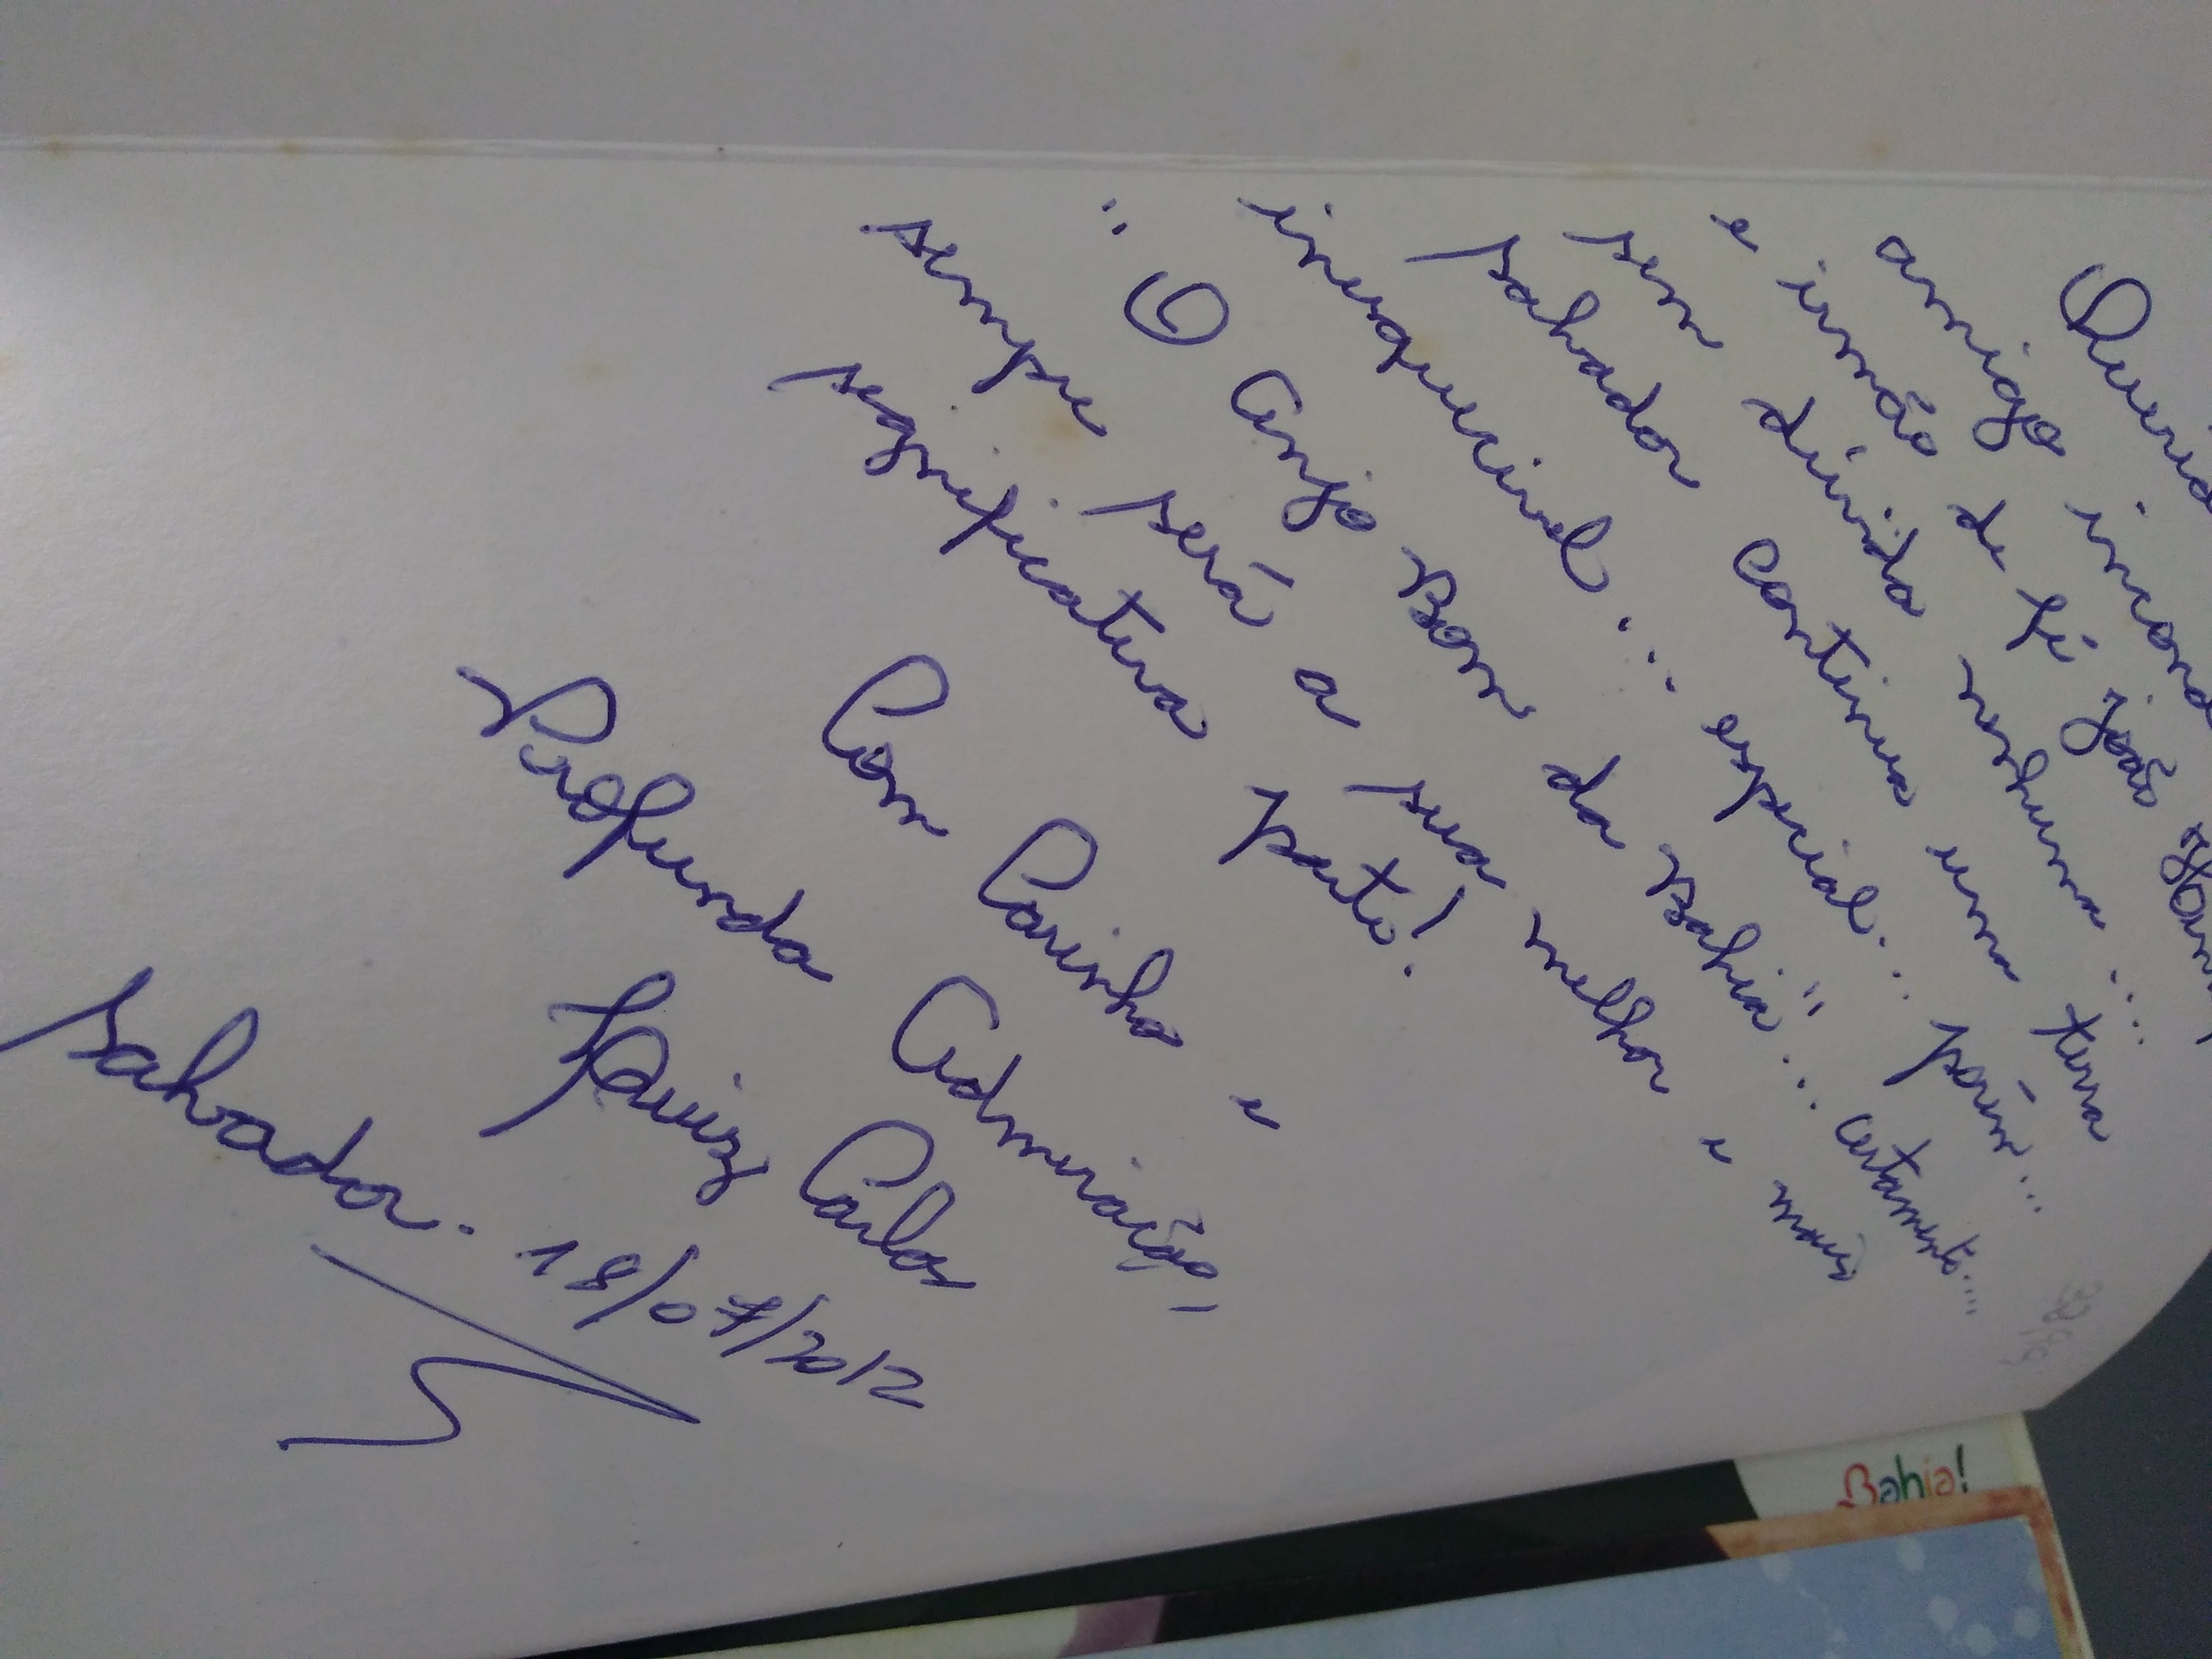 amigo
e irmão de fé João
sem dúvida nenhuma...
Salvador continua uma terra
inesquecível... especial... porém...
"O Anjo Bom da Bahia"... certamente...
sempre será a sua melhor e mais
significativa parte!
Com Carinho e
Profunda Admiração,
Luiz Carlos
Salvador. 18/07/2012
Bahia!